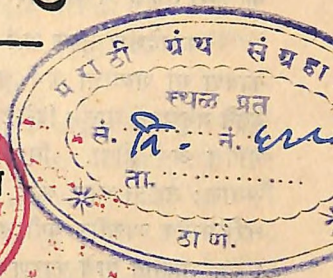 मराठी ग्रंथ संग्रहा
स्थळ प्रत
सं. वि. नं.
ता. ..................
ठाणे.